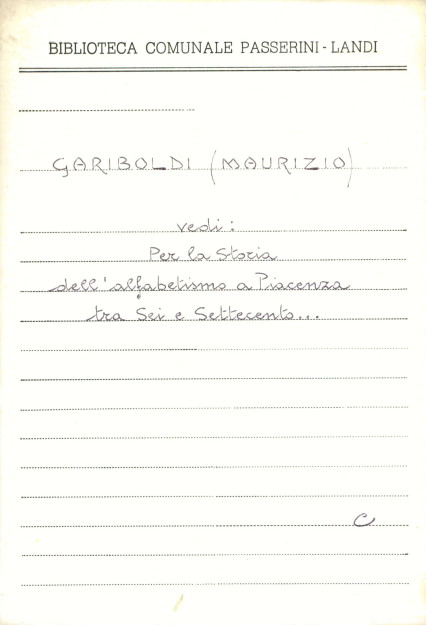 BIBLIOTECA COMUNALE PASSERINI - LANDI
GARIBOLDI (MAURIZIO)
vedi:
Per la Storia
dell'alfabetismo a Piacenza
tra Sei e Settecento...
C